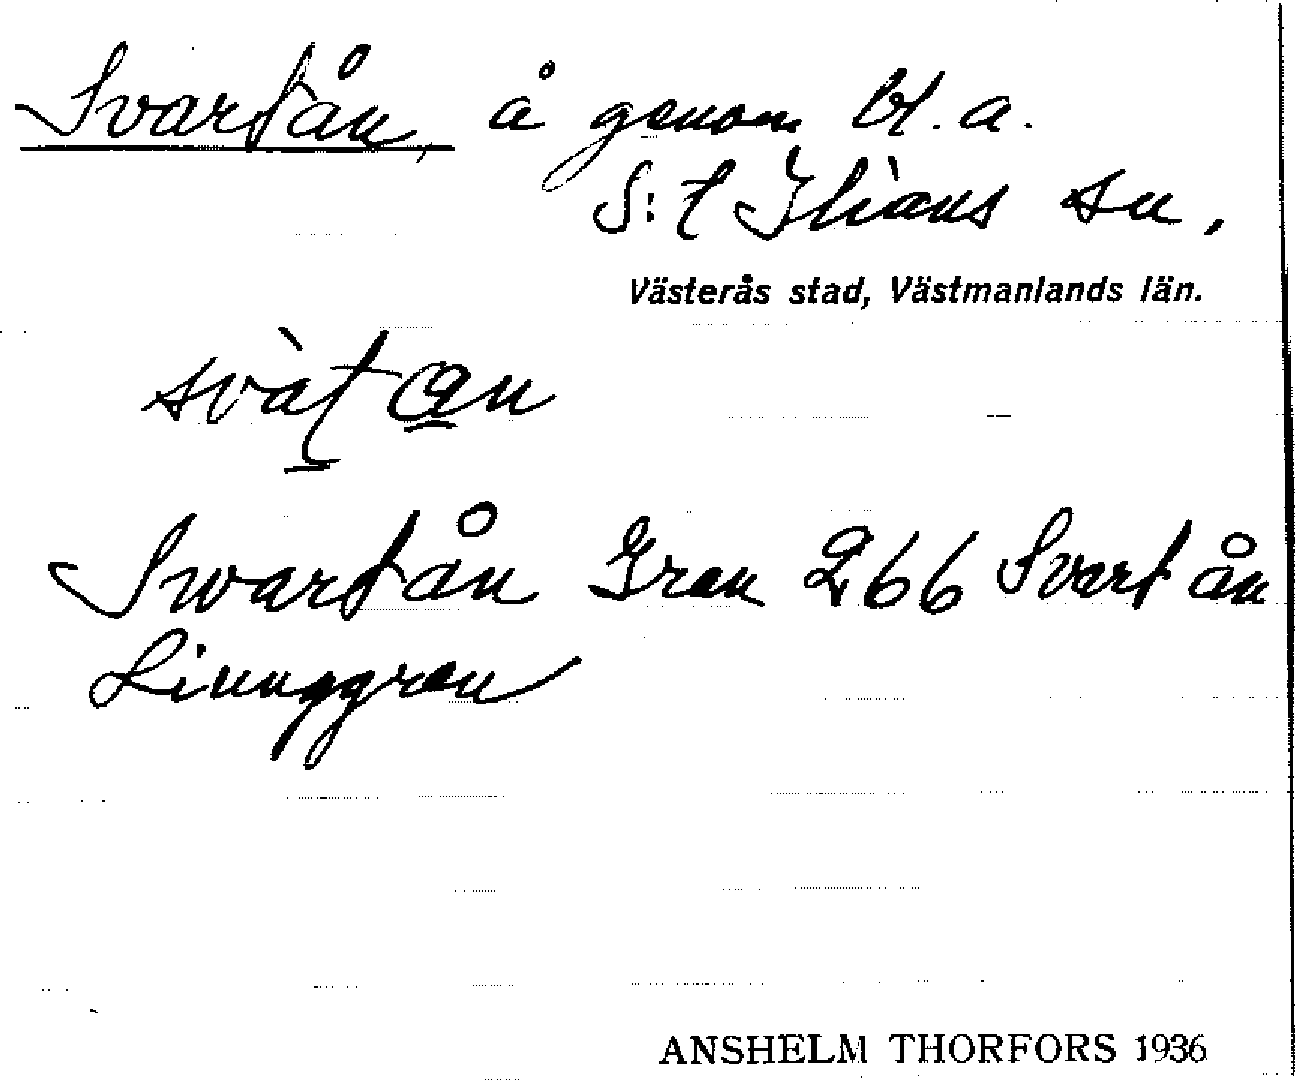 Svartån, å genom bl. a.
S:t Ilians sn,
Västerås stad, Västmanlands län.
svàṯ a̲n
Swartån Gran 266 Svartån
Linnggren
ANSHELM THORFORS 1936